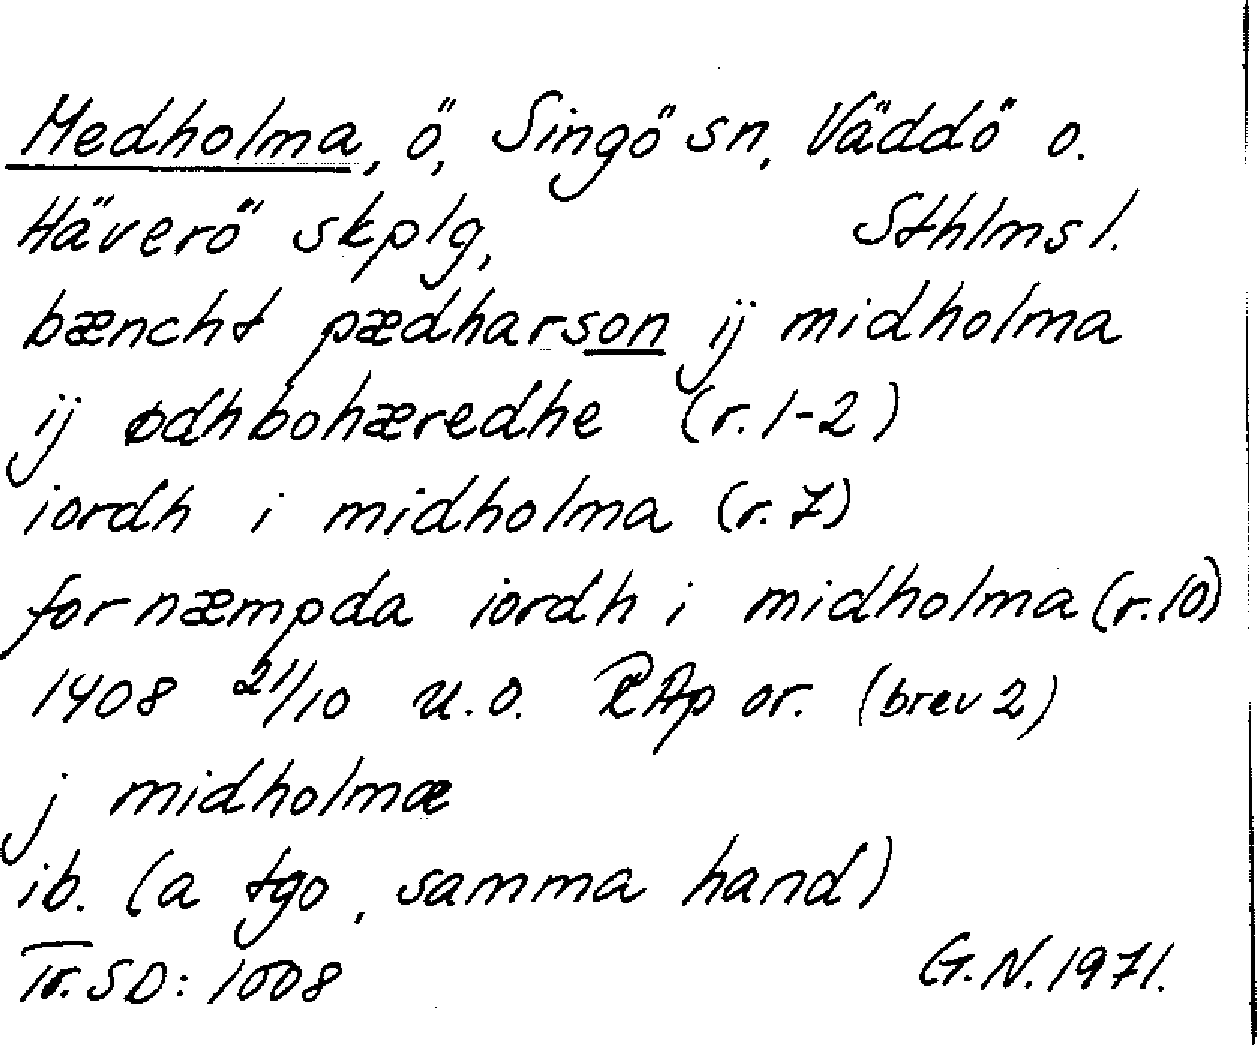 Medholma, ö, Singö sn, Väddö o.
Häverö skplg, Sthlms l.
bæncht pædharson ij midholma
ij ødhbohæredhe (r. 1-2)
iordh i midholma (r. 7)
fornæmpda iordh i midholma (r. 10)
1408 21/10 u.o. RAp or. (brev 2)
j midholmæ
ib. (a tgo, samma hand)
Tr. SD: 1008 G.N. 1971.